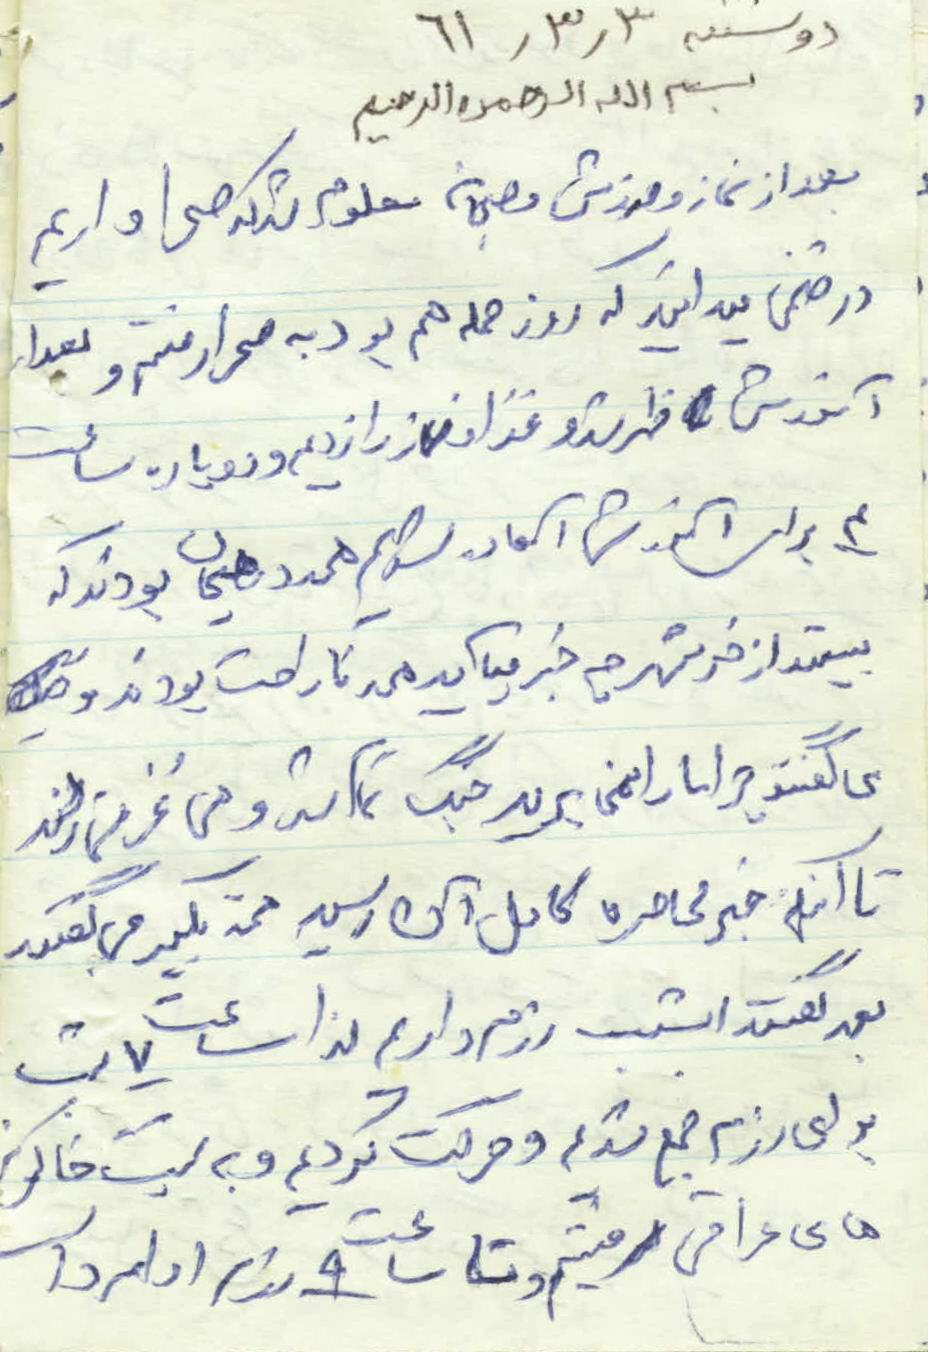 دوشنبه ۳ر۳ر۶۱
بسم الله الرحمن الرحیم
بعد از نماز و ورزش و صبحانه معلوم شد که صحرا داریم
در ضمن میدانید که روز حمله هم بود به صحرا رفتیم و بعد از
آموزش ظهر شد و غذا و نماز را زدیم و دوباره ساعت
۴ برای آموزش آماده شدیم همه در هیجان بودند که
ببینند از خرمشهر چه خبر میاید همه ناراحت بودند و
می گفتند چرا ما را نمی برید جنگ تمام شد و می غر میزدند
تا آنکه خبر محاصره کامل آن رسید همه تکبیر می گفتند
بعد گفتند امشب رزم داریم لذا ساعت ۷ شب
برای رزم جمع شدیم و حرکت کردیم و به پشت خاکریز
های عراقی رفتیم و تا ساعت ۹ رزم ادامه داشت